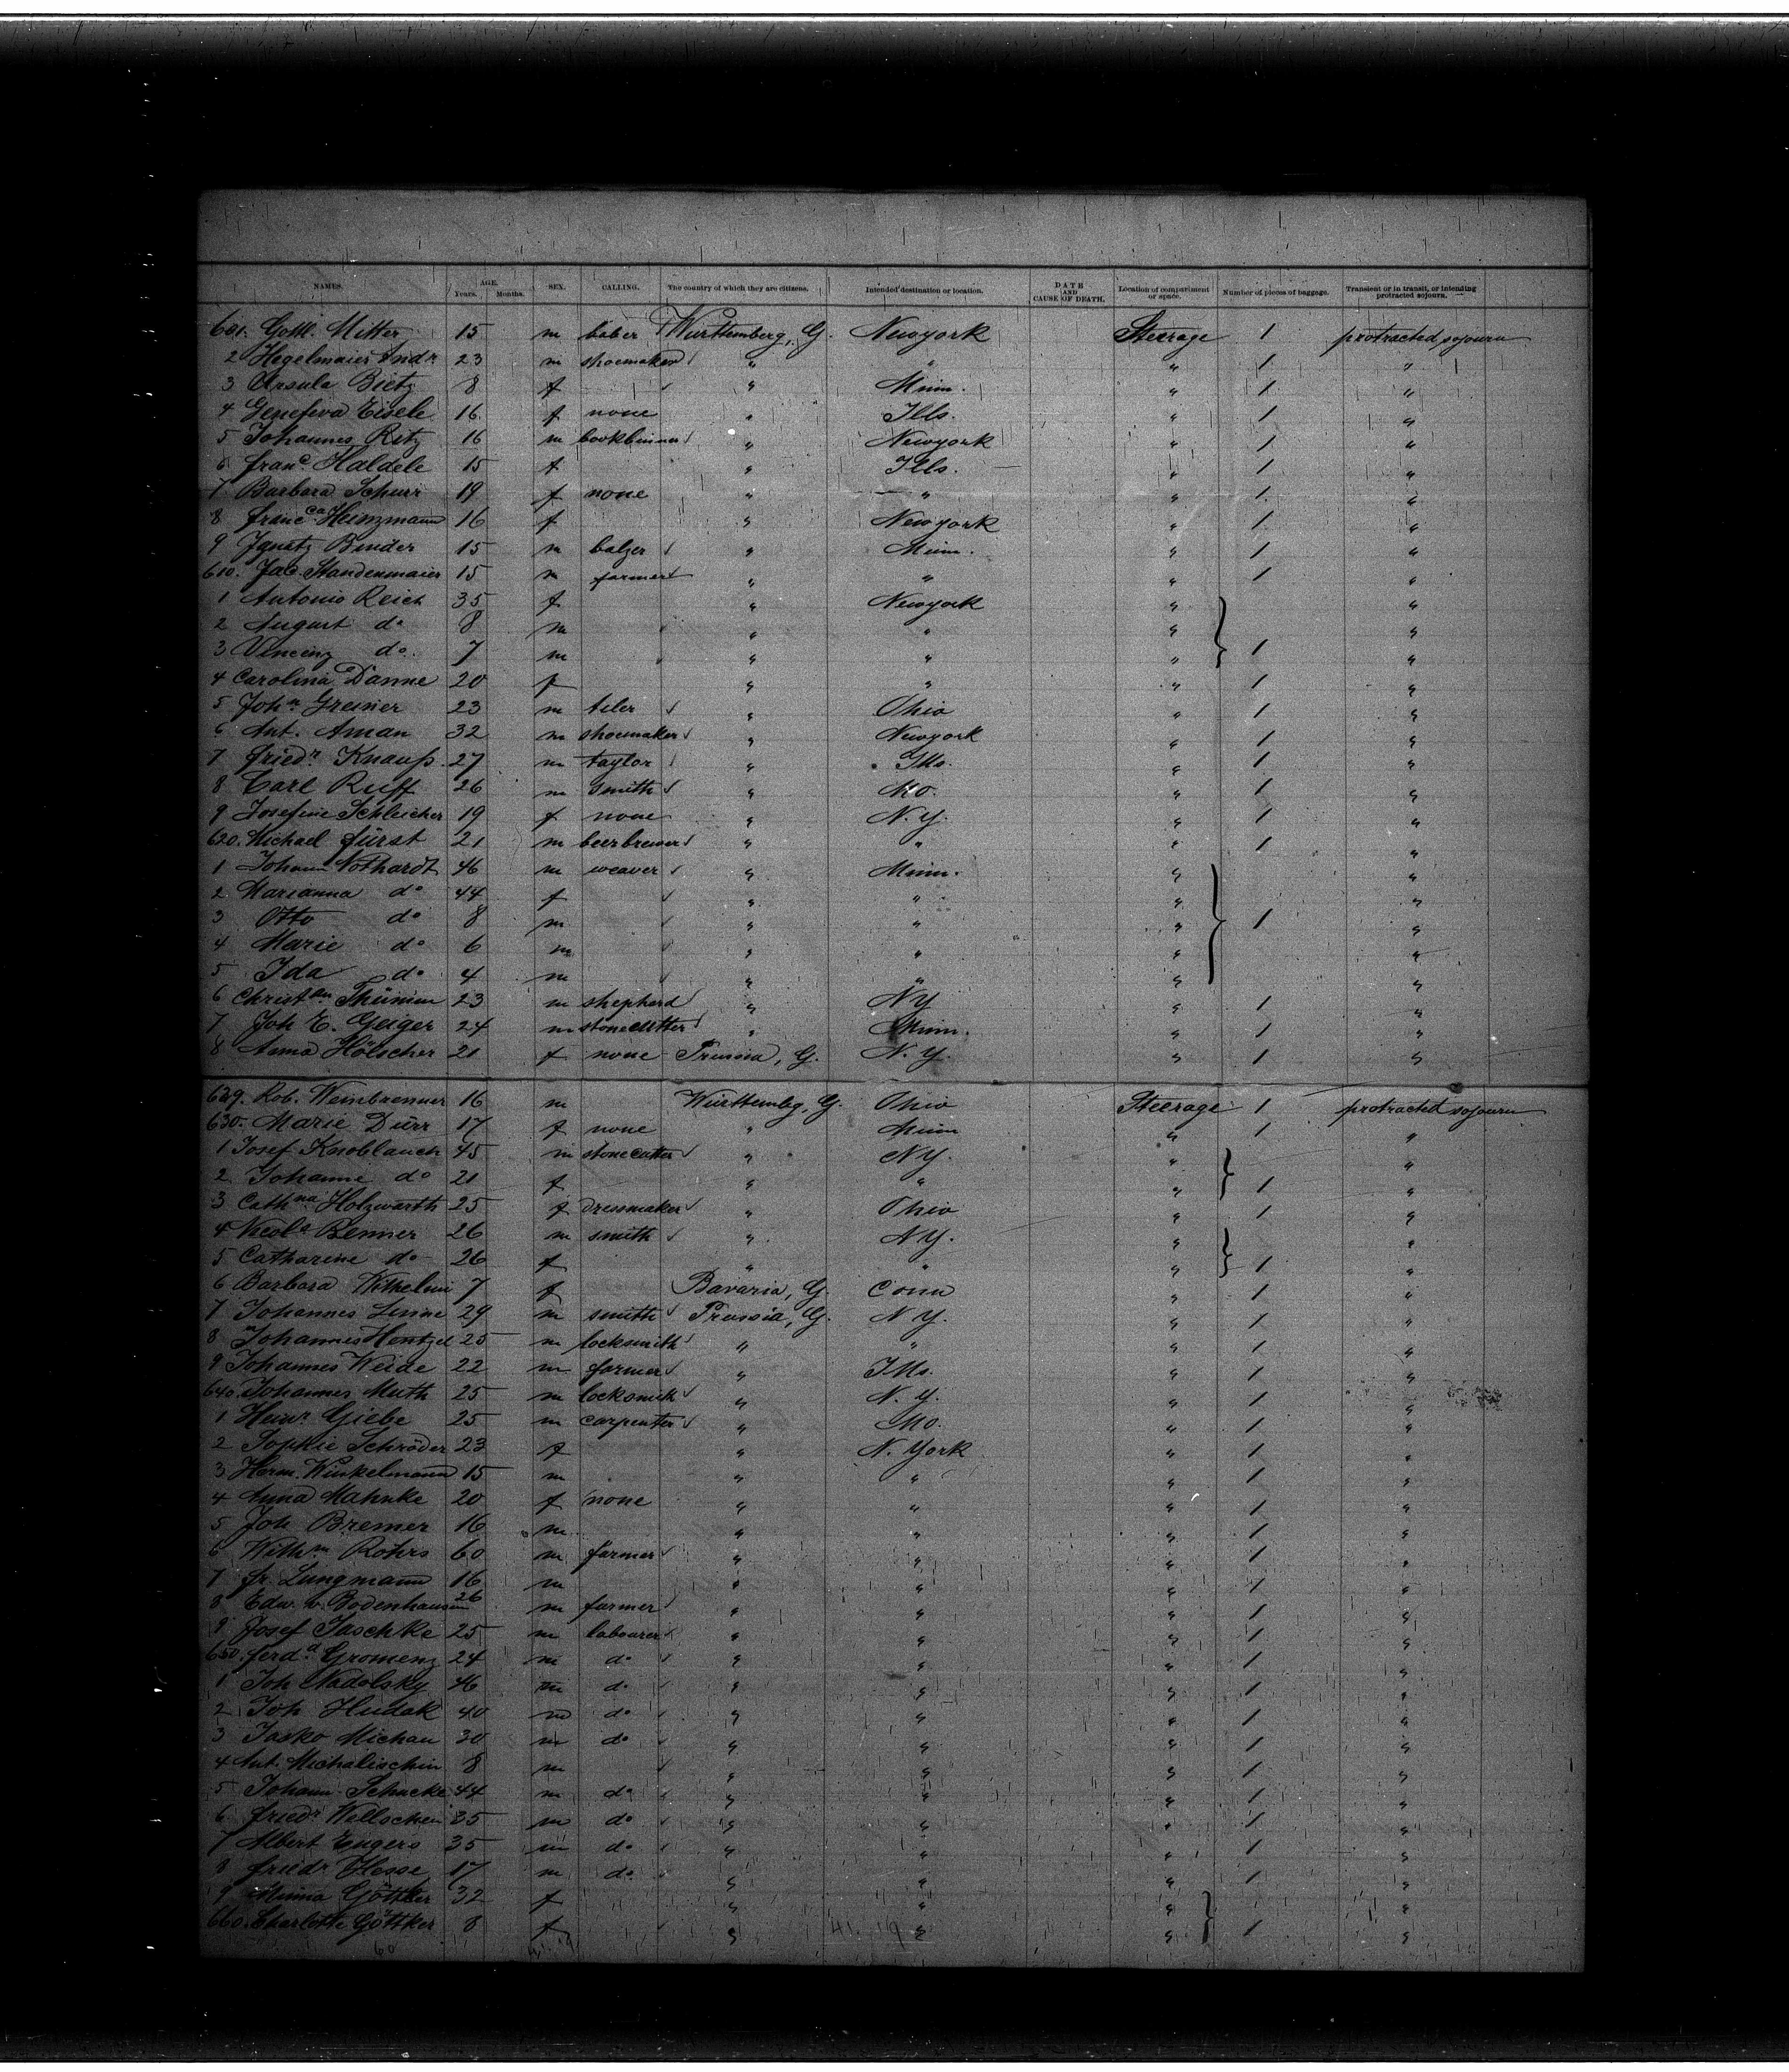 NAMES. AGE. Years. Months. SEX. CALLING. The country of which they are citizens. Intended destination or location. DATE AND CAUSE OF DEATH. Location of compartment or space. Number of pieces of baggage. Transient or in transit, or intending protracted sojourn.
601. Gottl. Mitter 15 m baker Württemberg, G. Newyork Steerage 1 protracted sojourn
2 Hegelmaier Andr 23 m shoemaker " " " 1 "
3 Ursula Bietz 8 f " Minn. " 1 "
4 Genefeva Eisele 16 f none " Ills. " 1 "
5 Johannes Ritz 16 m bookbinner " Newyork " 1 "
6 franc. Haldele 15 f " Ills. " 1 "
7 Barbara Schurr 19 f none " " " 1 "
8 franc ca Heinzmann 16 f " Newyork " 1 "
9 Ignatz Binder 15 m " Minn. " 1 "
610. Jac. Standenmaier 15 m farmer " " " 1 "
1 Antonio Reich 35 f " Newyork " "
2 August do 8 m " " " "
3 Vincenz do. 7 m " " " 1 "
4 Carolina Danne 20 f " " " 1 "
5 Joh n Greiner 23 m tiler " Ohio " 1 "
6 Ant. Aman 32 m shoemaker " Newyork " 1 "
7 friedr. Knauß 27 m taylor " Ills. " 1 "
8 Carl Ruff 26 m smith " Mo. " 1 "
9 Josefine Schleicher 19 f none " N.Y. " 1 "
620. Michael fürst 21 m beerbrewer " " " 1 "
1 Johann Nothardt 46 m weaver " Minn. " "
2 Marianna do 44 f " " " "
3 Otto do 8 m " " " 1 "
4 Marie do 6 m " " " "
5 Ida do 4 m " " " "
6 Christ an Thümm 23 m shepherd " NY " 1 "
7 Joh E. Geiger 24 m stonecutter " Minn. " 1 "
8 Anna Hölscher 21 f none Prussia, G. N.Y. " 1 "
629. Rob. Weinbrenner 16 m Württembg, G. Ohio Steerage 1 protracted sojourn
630. Marie Dürr 17 f none " Minn " 1 "
1 Josef Knoblauch 45 m stonecutter " NY. " "
2 Johanne do 21 f " " " 1 "
3 Cath na Holzwarth 25 f dressmaker " Ohio " 1 "
4 Nicola Benner 26 m smith " NY. " "
5 Catharine do 26 f " " " 1 "
6 Barbara Wilhelm 7 f Bavaria, G. Conn " 1 "
7 Johannes Linne 29 m smith Prussia, G. NY. " 1 "
8 Johannes Hentzel 25 m locksmith " " " 1 "
9 Johannes Weide 22 m farmer " Ills. " 1 "
640. Johannes Muth 25 m locksmith " N.Y. " 1 "
1 Heinr Giebe 25 m carpenter " Mo. " 1 "
2 Sophie Schröder 23 f " N. York " 1 "
3 Herm. Winkelmann 15 m " " " 1 "
4 Anna Mahnke 20 f none " " " 1 "
5 Joh Bremer 16 m " " " 1 "
6 Wilh m Rohrs 60 m farmer " " " 1 "
7 fr. Lungmann 16 m " " " 1 "
8 Edw. v. Bodenhausen 26 m farmer " " " 1 "
9 Josef Jaschke 25 m labourer " " " 1 "
650. ferd d Gromenz 24 m do " " " 1 "
1 Joh Nadolsky 46 m do " " " 1 "
2 Joh Hudak 40 m do " " " 1 "
3 Jasko Michau 30 m do " " " 1 "
4 Ant. Michalischin 8 m " " " 1 "
5 Johann Schucke 44 m do " " " 1 "
6 friedr Willschei 35 m do " " " 1 "
7 Albert Engers 35 m do " " " 1 "
8 friedr Hesse 17 m do " " " 1 "
9 Minna Göttker 32 f " " " "
660. Charlotte Göttker 8 f " " " 1 "
60 41.19 41.19